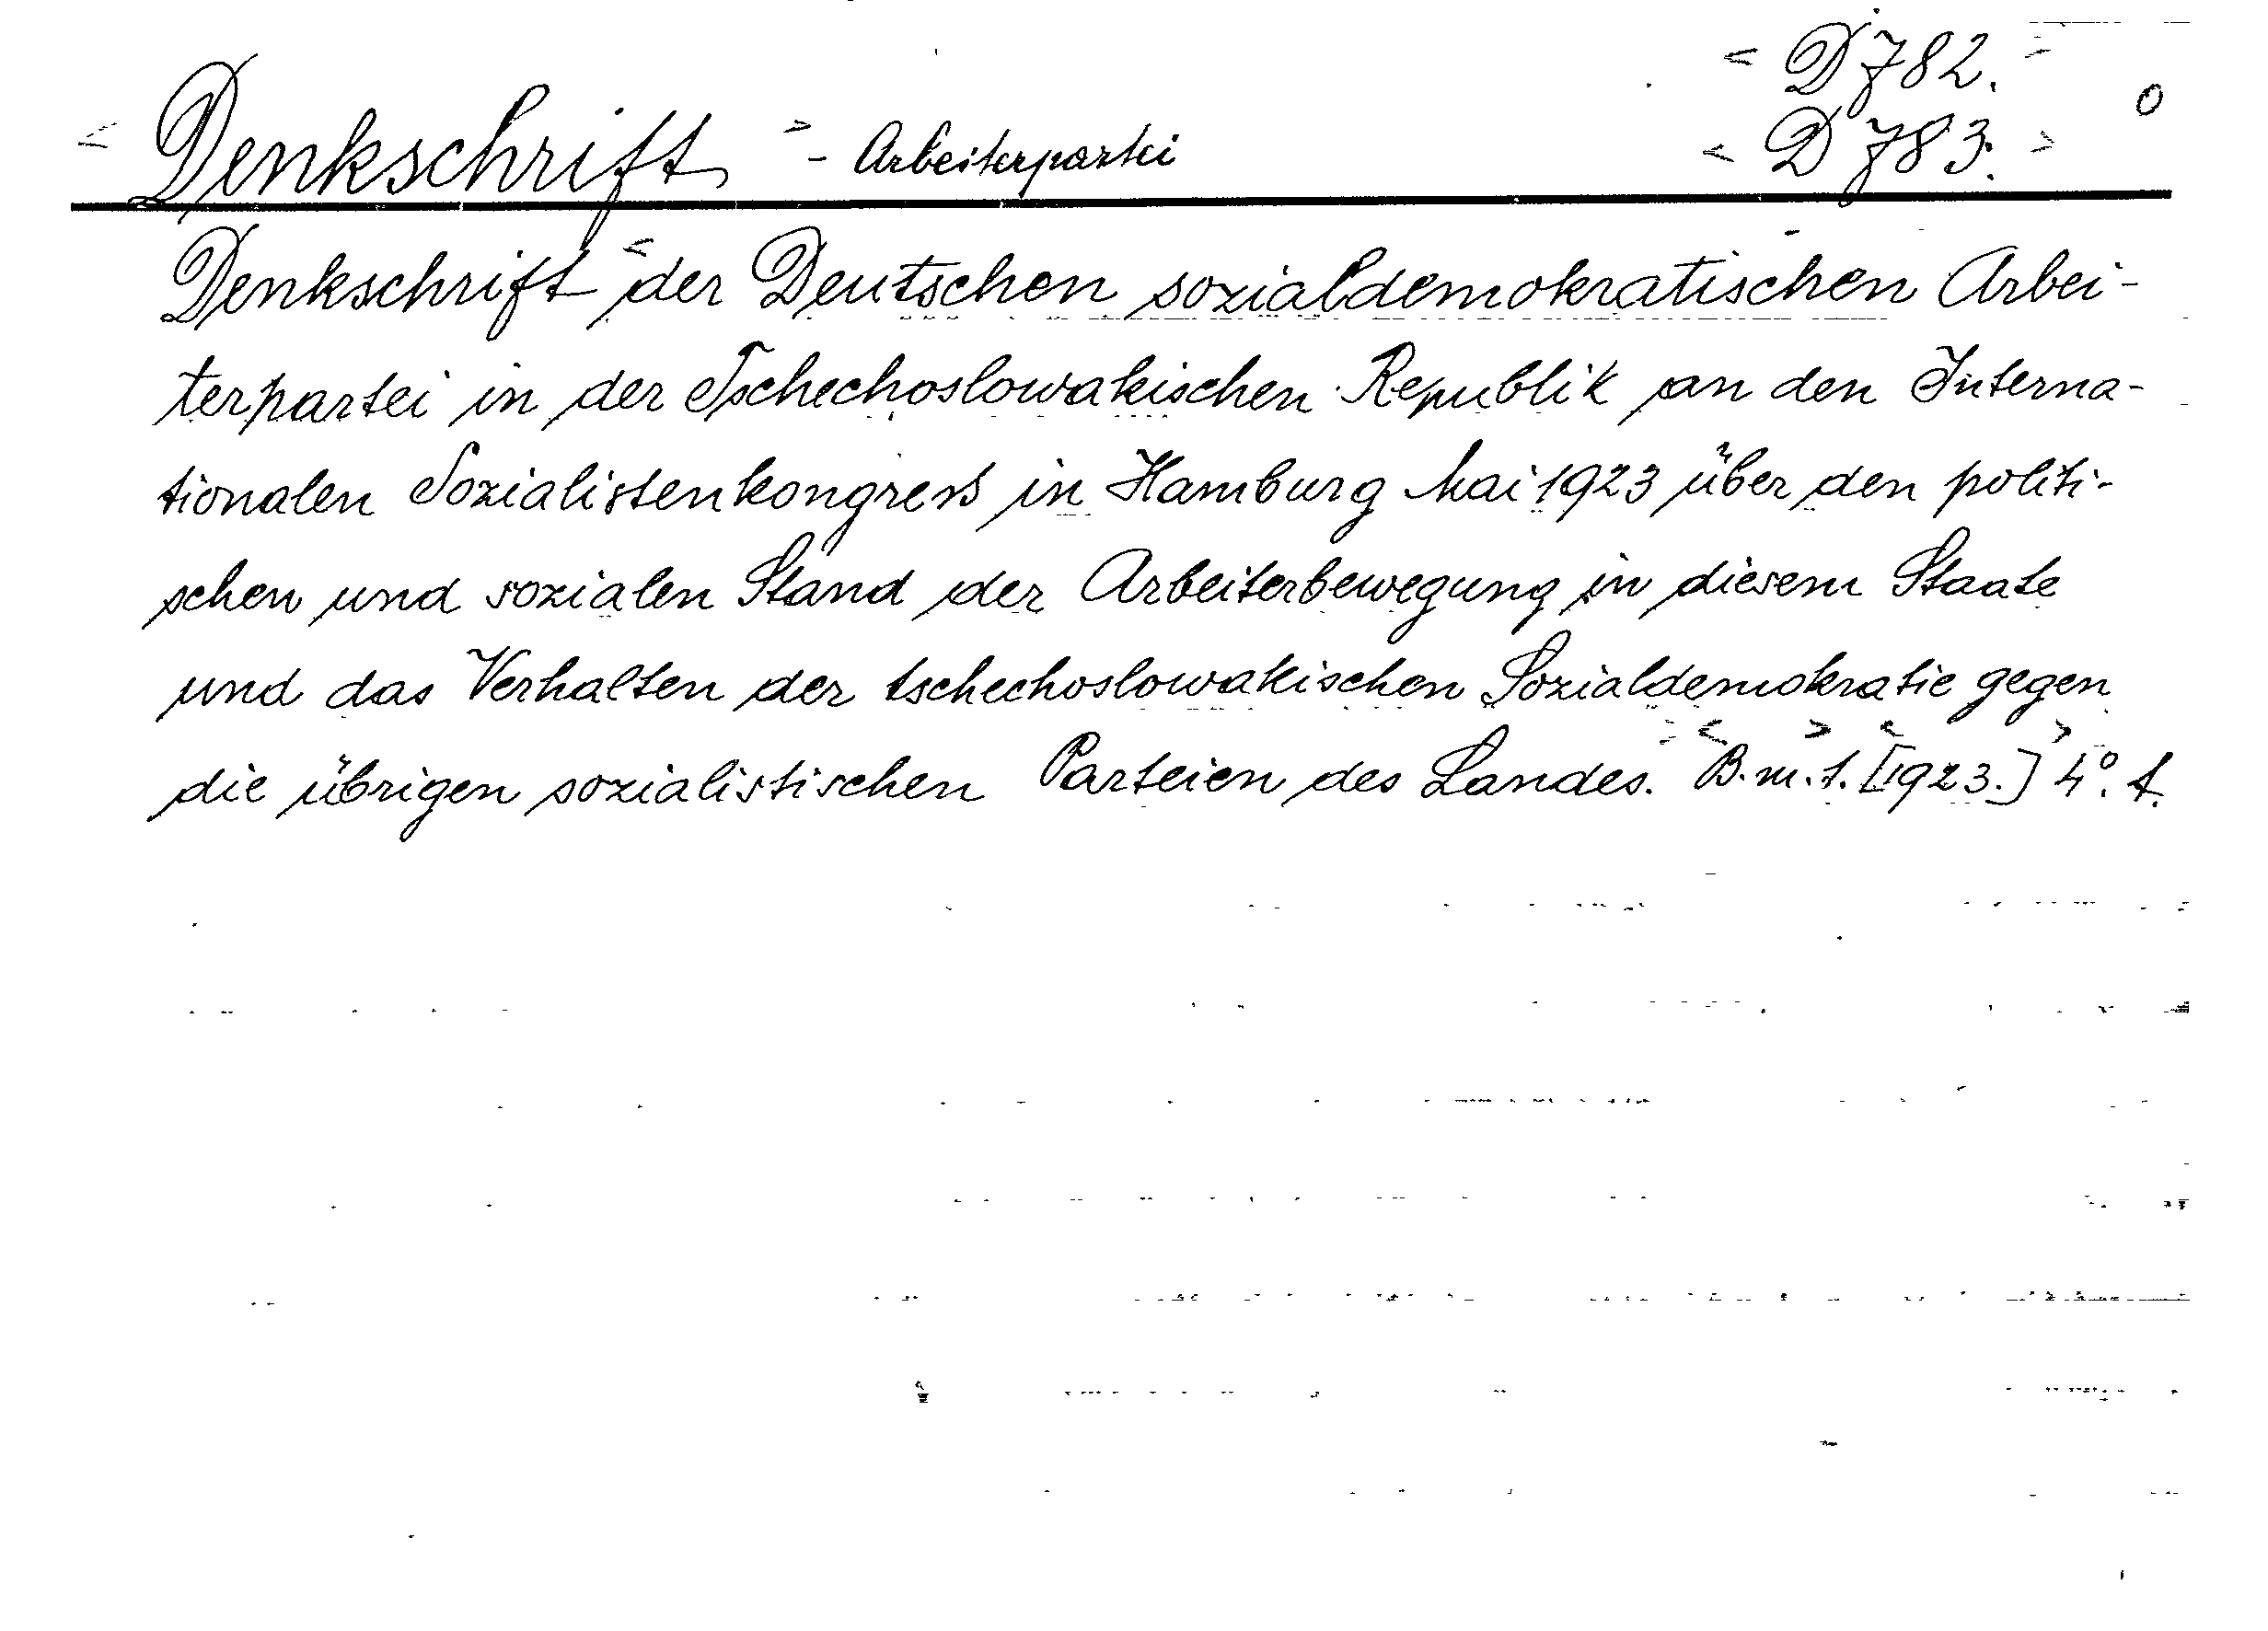 < D 782. >
< Denkschrift > - Arbeiterpartei < D 783. > 0
Denkschrift < der Deutschen sozialdemokratischen Arbei-
terpartei in der Tschechoslowakischen Republik an den Interna-
tionalen Sozialistenkongress in Hamburg Mai 1923 über den politi-
schen und sozialen Stand der Arbeiterbewegung in diesem Staate
und das Verhalten der tschechoslowakischen Sozialdemokratie gegen
die übrigen sozialistischen Parteien des Landes. > < B. m. t. > < [1923.] > 4°.